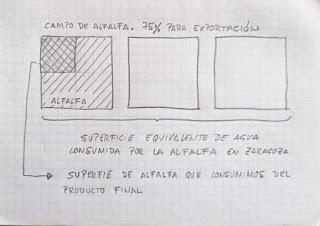 CAMPO DE ALFALFA. 75% PARA EXPORTACIÓN
ALFALFA
SUPERFICIE EQUIVALENTE DE AGUA
CONSUMIDA POR LA ALFALFA EN ZARAGOZA
SUPERFIE DE ALFALFA QUE CONSUMIMOS DEL
PRODUCTO FINAL